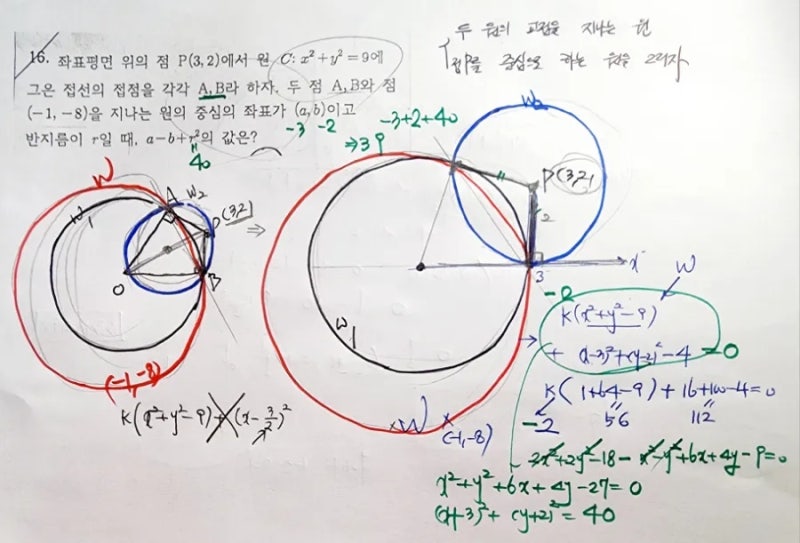 두 원의 교점을 지나는 원
접P를 중심으로 하는 원을 그리자
16. 좌표평면 위의 점 P(3, 2)에서 원 C: x²+y²=9에
그은 접선의 접점을 각각 A, B라 하자. 두 점 A, B와 점
(-1, -8)을 지나는 원의 중심의 좌표가 (a, b)이고
반지름이 r일 때, a-b+r²의 값은?
-3 -2
-3+2+40
⇒39
40
W
A
W₂
W₁
P(3,2)
⇒
O
B
(-1,-8)
W₂
P(3,2)
2
3
x
W₁
W
(-1,-8)
W
K(x²+y²-9)
+ (x-3)²+(y-2)²-4 =0
K(1+64-9)+16+100-4=0
-2
56
112
K(x²+y²-9)+(x-3/2)²
2x²+2y²-18-x²-y²+6x+4y-9=0
x²+y²+6x+4y-27=0
(x+3)²+(y+2)²=40